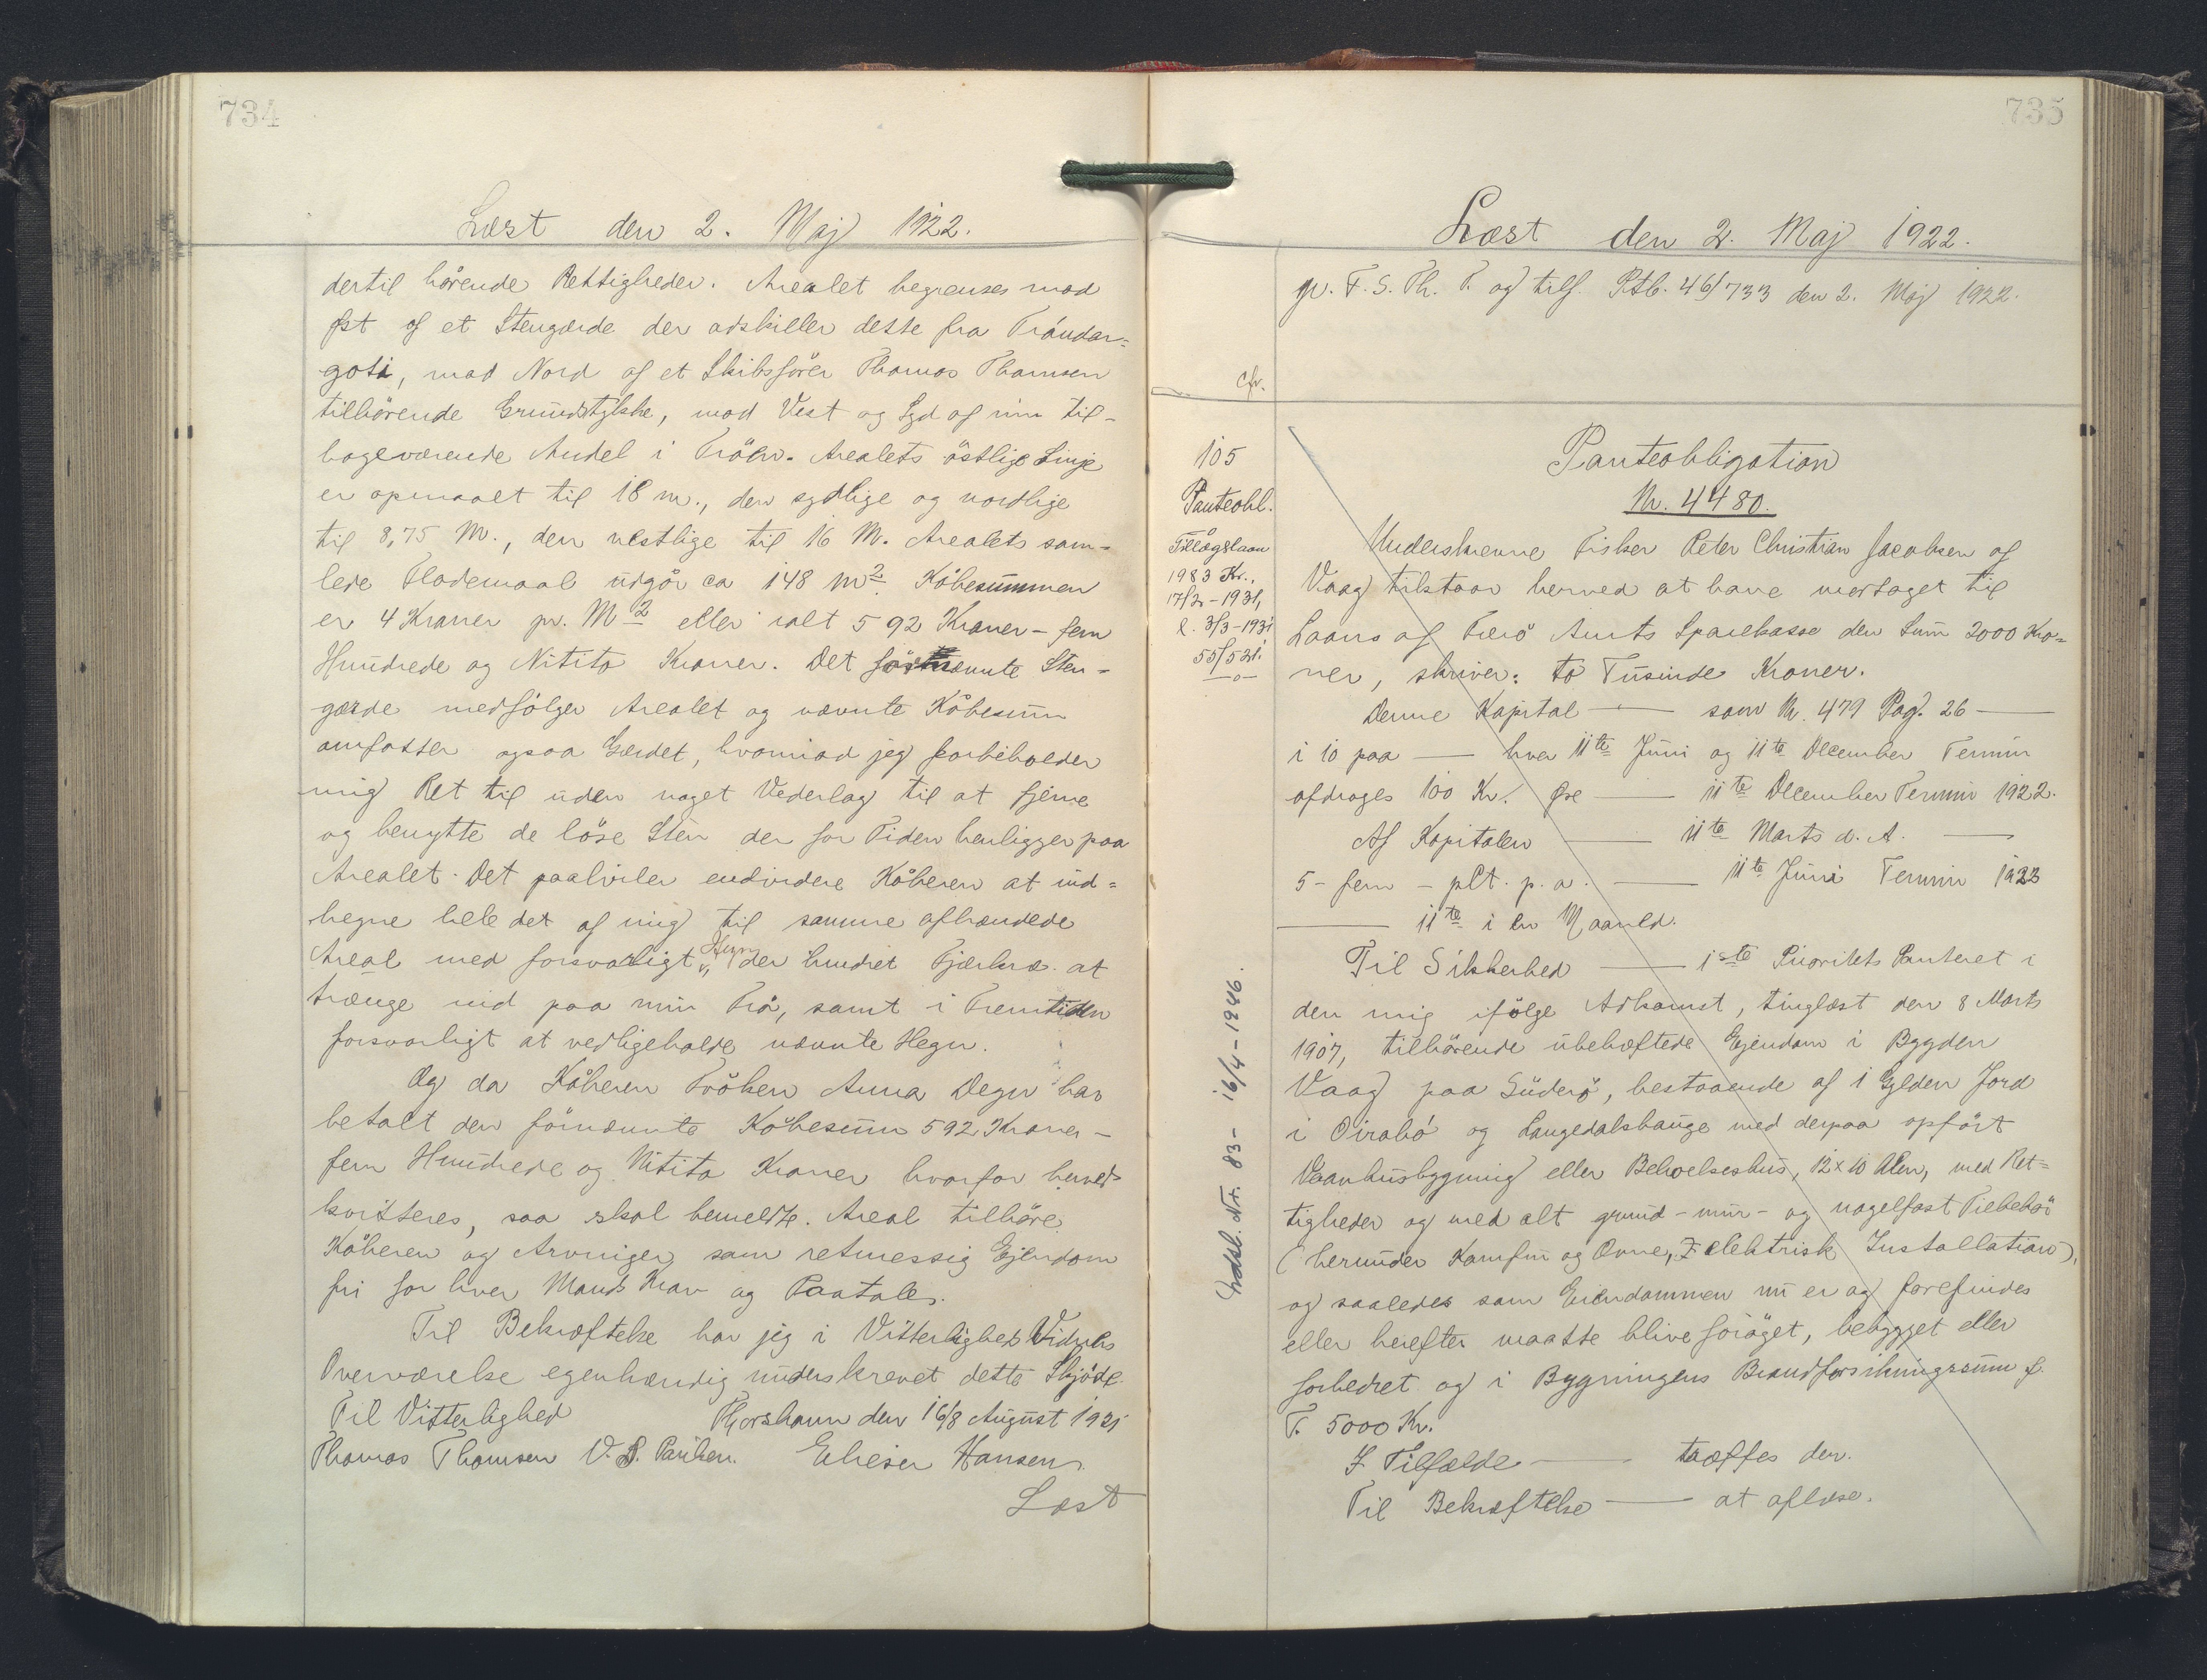 734
Læst den 2. Maj 1922.
dertil hörende Rettigheder. Arealet begrænses mod
Øst af et Stengærde der adskiller dette fra Tróndar=
götu, mod Nord af et Skibsförer Thomas Thomsen
tilhörende Grundstykke, mod Vest og Syd af min til-
bageværende Andel i Tröen. Arealets östlige Linje
er opmaalt til 18 m., den sydlige og nordlige
til 8,75 M., den vestlige til 16 M. Arealets sam=
lede Flademaal udgör ca 148 m². Köbesummen
er 4 Kroner pr. M² eller ialt 592 Kroner - fem
Hundrede og Nitito Kroner. Det förstnævnte Sten-
gærde medfölger Arealet og nævnte Köbesum
omfatter ogsaa Gærdet, hvorimod jeg forbeholder
mig Ret til uden noget Vederlag til at fjerne
og benytte de löse Sten der for Tiden henligger paa
Arealet. Det paahviler endvidere Köberen at ind=
hegne hele det af mig til samme afhændede
Areal med forsvarligt Hegn der hindret Fjerkræ at
trænge ind paa min Trö, samt i Fremtiden
forsvarligt at vedligeholde nævnte Hegn.
Og da Köberen Fröken Anna Degn har
betalt den förnævnte Köbesum 592 Kroner -
fem Hundrede og Nitito Kroner hvorfor herved
kvitteres, saa skal bemeldte Areal tilhöre
Köberen og Arvinger som retmessig Ejendom
fri for hver Mands Krav og Paatale.
Til Bekræftelse har jeg i Vitterligheds Vidners
Overværelse egenhændig underskrevet dette Skjöde.
Til Vitterlighed Thorshavn den 16/8 August 1921
Thomas Thomsen V. S. Paulsen. Elieser Hansen.
Læst
735
Læst den 2. Maj 1922.
gr. F. S. Th. P. og tilf. Ptb. 46/733 den 2. Maj 1922.
cfr.
105
Panteobl.
Tillægslaan
1983 Kr.,
17/2-1931,
l. 3/3-1931
55/521.
-o-
Udsl. Nr. 83 - 16/4-1946.
Panteobligation
Nr. 4480.
Underskrevne Fisker Peter Christian Jacobsen af
Vaag tilstaar herved at have modtaget til
Laans af Færö Amts Sparekasse den Sum 2000 Kro=
ner, skriver: to Tusinde Kroner.
Denne Kapital — som Nr. 479 Pag. 26 —
i 10 paa — hver 11te Juni og 11te December Termin
afdrages 100 Kr. Øre — 11te December Termin 1922.
Af Kapitalen — 11te Marts d. A. —
5 - fem - pCt. p. a. — 11te Juni Termin 1922
— 11te i en Maaned.
Til Sikkerhed — 1ste Prioritets Panteret i
den mig ifölge Adkomst, tinglæst den 8 Marts
1907, tilhörende übehæftede Ejendom i Bygden
Vaag paa Süderö, bestaaende af 1 Gylden Jord
i Oirabö og Langedalshauge med derpaa opfört
Vaanhusbygning eller Beboelseshus, 12 x 10 Alen, med Ret=
tigheder og med alt grund- mur- og nagelfast Tilbehör
(herunder Komfur og Ovne, elektrisk Installation),
og saaledes som Eiendommen nu er og forefindes
eller herefter maatte blive foröget, bebygget eller
forbedret og i Bygningens Brandforsikringssum f.
T. 5000 Kr.
I Tilfælde — træffes den.
Til Bekræftelse — at aflæse.